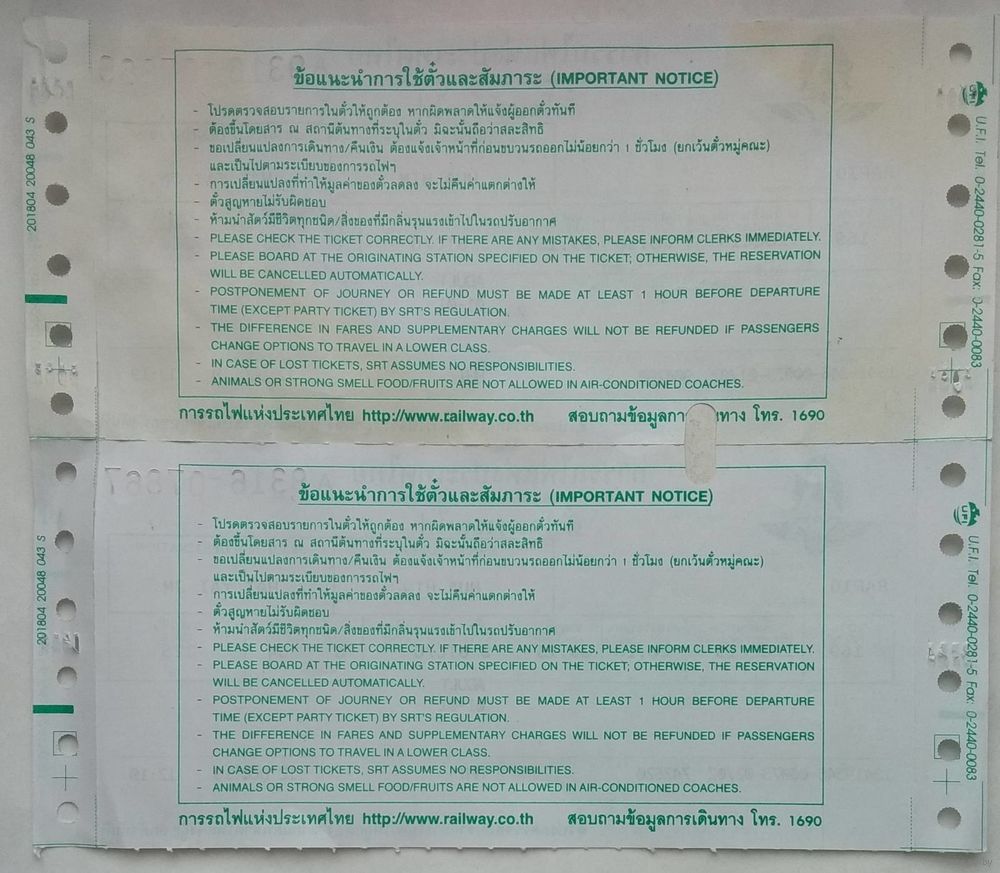 ข้อแนะนำการใช้ตั๋วและสัมภาระ (IMPORTANT NOTICE)
- โปรดตรวจสอบรายการในตั๋วให้ถูกต้อง หากผิดพลาดให้แจ้งผู้ออกตั๋วทันที
- ต้องขึ้นโดยสาร ณ สถานีต้นทางที่ระบุในตั๋ว มิฉะนั้นถือว่าสละสิทธิ
- ขอเปลี่ยนแปลงการเดินทาง/คืนเงิน ต้องแจ้งเจ้าหน้าที่ก่อนขบวนรถออกไม่น้อยกว่า 1 ชั่วโมง (ยกเว้นตั๋วหมู่คณะ)
และเป็นไปตามระเบียบของการรถไฟฯ
- การเปลี่ยนแปลงที่ทำให้มูลค่าของตั๋วลดลง จะไม่คืนค่าแตกต่างให้
- ตั๋วสูญหายไม่รับผิดชอบ
- ห้ามนำสัตว์มีชีวิตทุกชนิด/สิ่งของที่มีกลิ่นรุนแรงเข้าไปในรถปรับอากาศ
- PLEASE CHECK THE TICKET CORRECTLY. IF THERE ARE ANY MISTAKES, PLEASE INFORM CLERKS IMMEDIATELY.
- PLEASE BOARD AT THE ORIGINATING STATION SPECIFIED ON THE TICKET; OTHERWISE, THE RESERVATION
WILL BE CANCELLED AUTOMATICALLY.
- POSTPONEMENT OF JOURNEY OR REFUND MUST BE MADE AT LEAST 1 HOUR BEFORE DEPARTURE
TIME (EXCEPT PARTY TICKET) BY SRT'S REGULATION.
- THE DIFFERENCE IN FARES AND SUPPLEMENTARY CHARGES WILL NOT BE REFUNDED IF PASSENGERS
CHANGE OPTIONS TO TRAVEL IN A LOWER CLASS.
- IN CASE OF LOST TICKETS, SRT ASSUMES NO RESPONSIBILITIES.
- ANIMALS OR STRONG SMELL FOOD/FRUITS ARE NOT ALLOWED IN AIR-CONDITIONED COACHES.
การรถไฟแห่งประเทศไทย http://www.railway.co.th สอบถามข้อมูลกา ทาง โทร. 1690
201804 20048 043 S
UFI
U.F.I. Tel. 0-2440-0281-5 Fax: 0-2440-0083
ข้อแนะนำการใช้ตั๋วและสัมภาระ (IMPORTANT NOTICE)
- โปรดตรวจสอบรายการในตั๋วให้ถูกต้อง หากผิดพลาดให้แจ้งผู้ออกตั๋วทันที
- ต้องขึ้นโดยสาร ณ สถานีต้นทางที่ระบุในตั๋ว มิฉะนั้นถือว่าสละสิทธิ
- ขอเปลี่ยนแปลงการเดินทาง/คืนเงิน ต้องแจ้งเจ้าหน้าที่ก่อนขบวนรถออกไม่น้อยกว่า 1 ชั่วโมง (ยกเว้นตั๋วหมู่คณะ)
และเป็นไปตามระเบียบของการรถไฟฯ
- การเปลี่ยนแปลงที่ทำให้มูลค่าของตั๋วลดลง จะไม่คืนค่าแตกต่างให้
- ตั๋วสูญหายไม่รับผิดชอบ
- ห้ามนำสัตว์มีชีวิตทุกชนิด/สิ่งของที่มีกลิ่นรุนแรงเข้าไปในรถปรับอากาศ
- PLEASE CHECK THE TICKET CORRECTLY. IF THERE ARE ANY MISTAKES, PLEASE INFORM CLERKS IMMEDIATELY.
- PLEASE BOARD AT THE ORIGINATING STATION SPECIFIED ON THE TICKET; OTHERWISE, THE RESERVATION
WILL BE CANCELLED AUTOMATICALLY.
- POSTPONEMENT OF JOURNEY OR REFUND MUST BE MADE AT LEAST 1 HOUR BEFORE DEPARTURE
TIME (EXCEPT PARTY TICKET) BY SRT'S REGULATION.
- THE DIFFERENCE IN FARES AND SUPPLEMENTARY CHARGES WILL NOT BE REFUNDED IF PASSENGERS
CHANGE OPTIONS TO TRAVEL IN A LOWER CLASS.
- IN CASE OF LOST TICKETS, SRT ASSUMES NO RESPONSIBILITIES.
- ANIMALS OR STRONG SMELL FOOD/FRUITS ARE NOT ALLOWED IN AIR-CONDITIONED COACHES.
การรถไฟแห่งประเทศไทย http://www.railway.co.th สอบถามข้อมูลการเดินทาง โทร. 1690
201804 20048 043 S
UFI
U.F.I. Tel. 0-2440-0281-5 Fax: 0-2440-0083